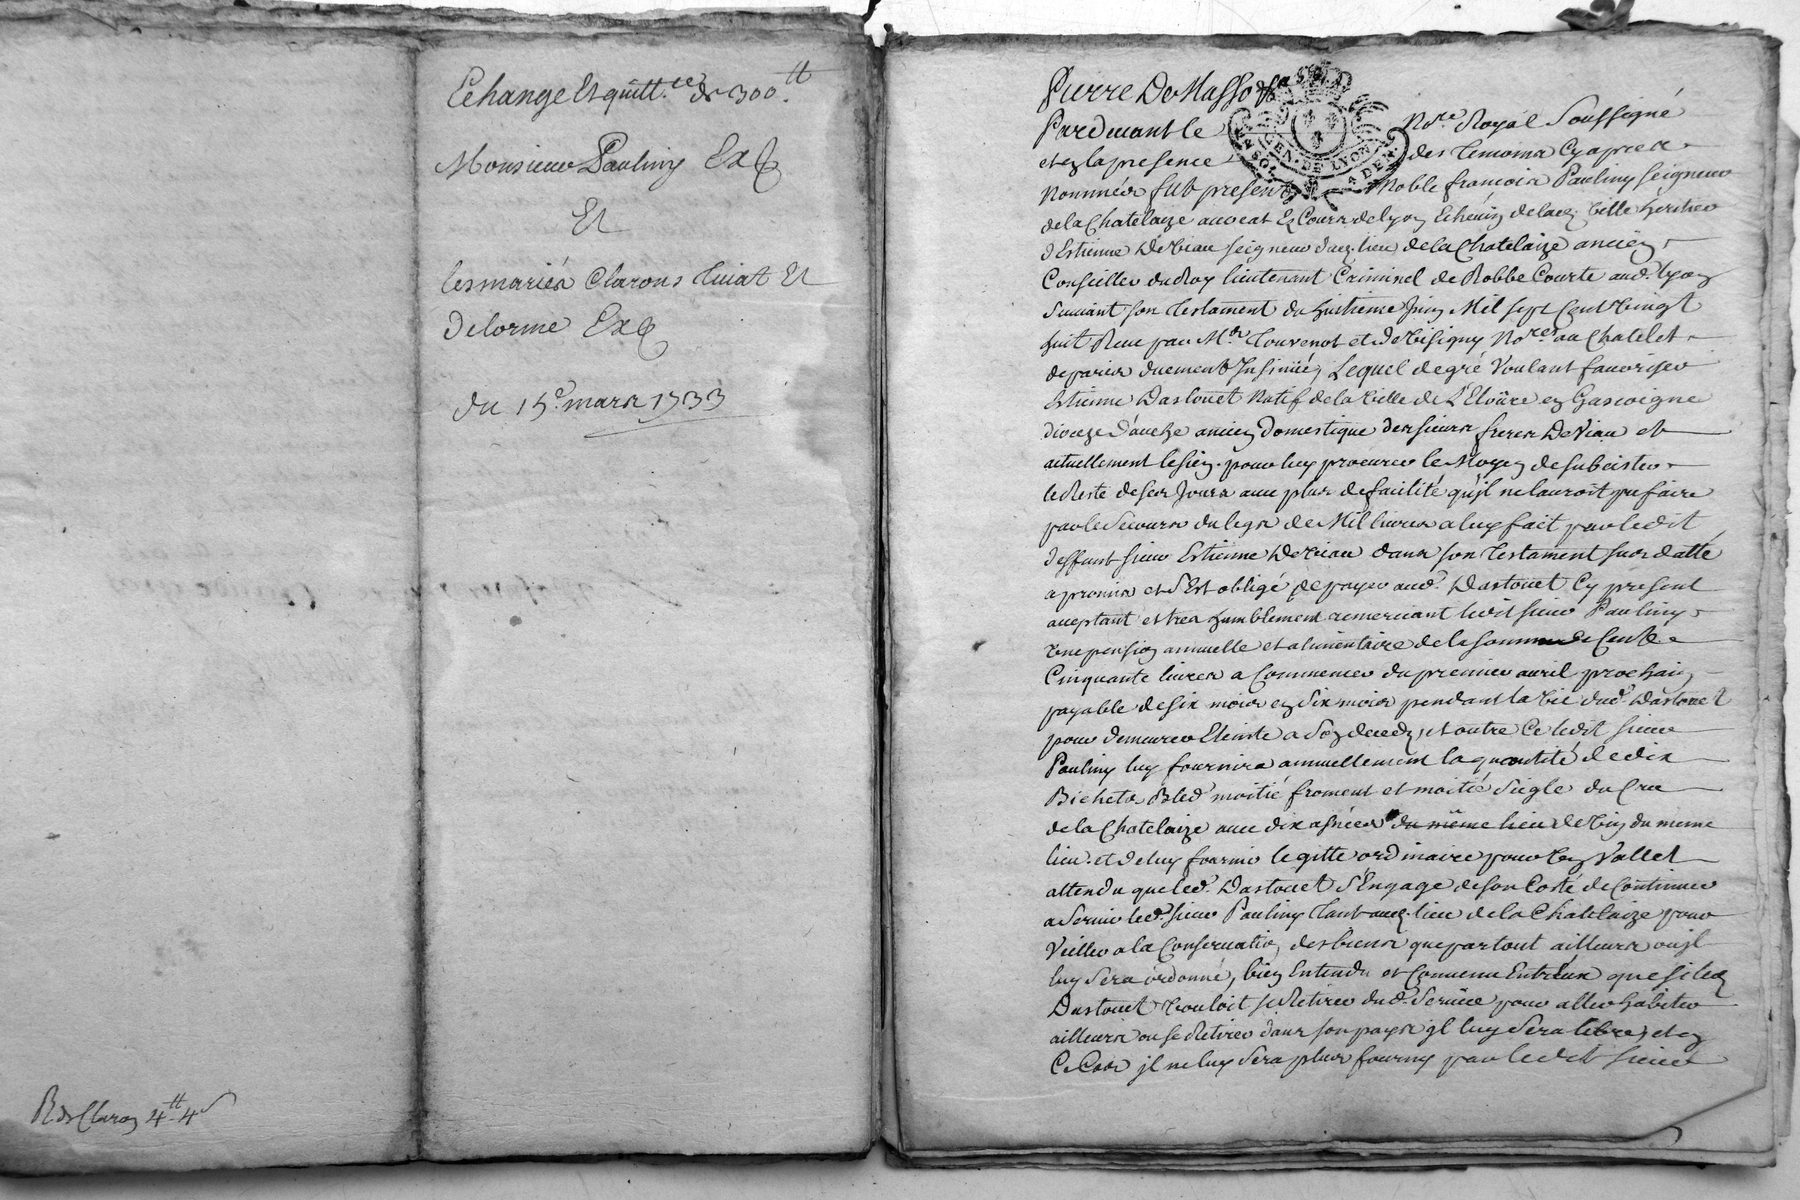 Echange Et quitt.ce de 300.tt
Monsieur Pauliny Ex&
Et
les mariés Clarons Tuiat Et
Delorme Ex&
du 15e. mars 1733
R. de Claron 4tt 4s
Pierre De Masso &a
Pardevant le No.re Royal Soussigné
et en la presence des temoins Cy apres
Nommés fut present Noble francois Pauliny seigneur
de la Chatelaize avocat Es Cours de lyon Echevin de lad. Ville heritier
d'Estienne De Viau seigneur dud. lieu de la Chatelaize ancien
Conseiller du Roy lieutenant Criminel de Robbe Courte aud. lyon
Suivant son Testament du huitieme Juin Mil sept Cent Vingt
huit Receu par Mes. Touvenot et de Visigny No.res au Chatelet
de paris duement Insinüé, Lequel de gré Voulant favoriser
Estienne Dastouet Natif de la Ville de L'Eloüre en Gascoigne
dioceze d'auche ancien Domestique des sieurs freres De Viau et
actuellement le sien. pour luy procurer le Moyen de subcister
le Reste de ses Jours avec plus de facilité qu'jl ne lauroit pu faire
par le Secours du legs de Mil livres a luy fait par ledit
deffunt sieur Estienne De Viau dans son Testament susdatté
a promis et s'Est obligé de payer aud. Dastouet Cy present
acceptant et tres humblement remerciant ledit sieur Pauliny
Une pension annuelle et alimentaire de la somme de Cent
Cinquante livres a Commencer du premier avril prochain
payable de six mois en Six mois pendant la Vie dud. Dastouet
pour demeurer Eteinte a Son deceds, et outre Ce ledit sieur
Pauliny luy fournira annuellement la quantité de dix
Bichets Bled moitié froment et moitié Siegle du Cru
de la Chatelaize avec dix asnées du même lieu de Vin du meme
lieu. et de luy fournir le gitte ordinaire pour Un Vallet
attendu que led. Dastouet s'Engage de son Costé de Continuer
a Servir led. sieur Pauliny Tant aud. lieu de la Chatelaize pour
Veiller a la Conservation des biens que partout ailleurs ou jl
luy Sera ordonné, bien Entendu et Convenu Entr'eux que si led.
Dastouet Vouloit se Retirer dud. Service pour aller habiter
ailleurs ou se Retirer dans son pays jl luy Sera libre, et en
Ce Cas jl ne luy Sera plus fourny par ledit sieur